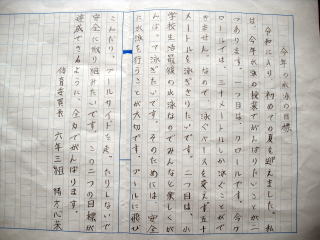 今年の水泳の目標
令和に入り、初めての夏を迎えました。私
は、今年水泳の授業でがんばりたいことが二
つあります。一つ目は、クロールです。今ク
ロールでは、三十メートルしか泳ぐことがで
きません。なので、泳ぐペースを変えず五十
メートルを泳ぎきりたいです。二つ目は、小
学校生活最後の水泳なのでみんなと楽しくが
んばって泳ぎたいです。そのためには、安全
に水泳を行うことが大切です。プールに飛び
こんだり、プールサイドを走ったりしないで
安全に取り組みたいです。この二つの目標が
達成できるように、全力でがんばります。
体育委員長 六年三組 緒方心